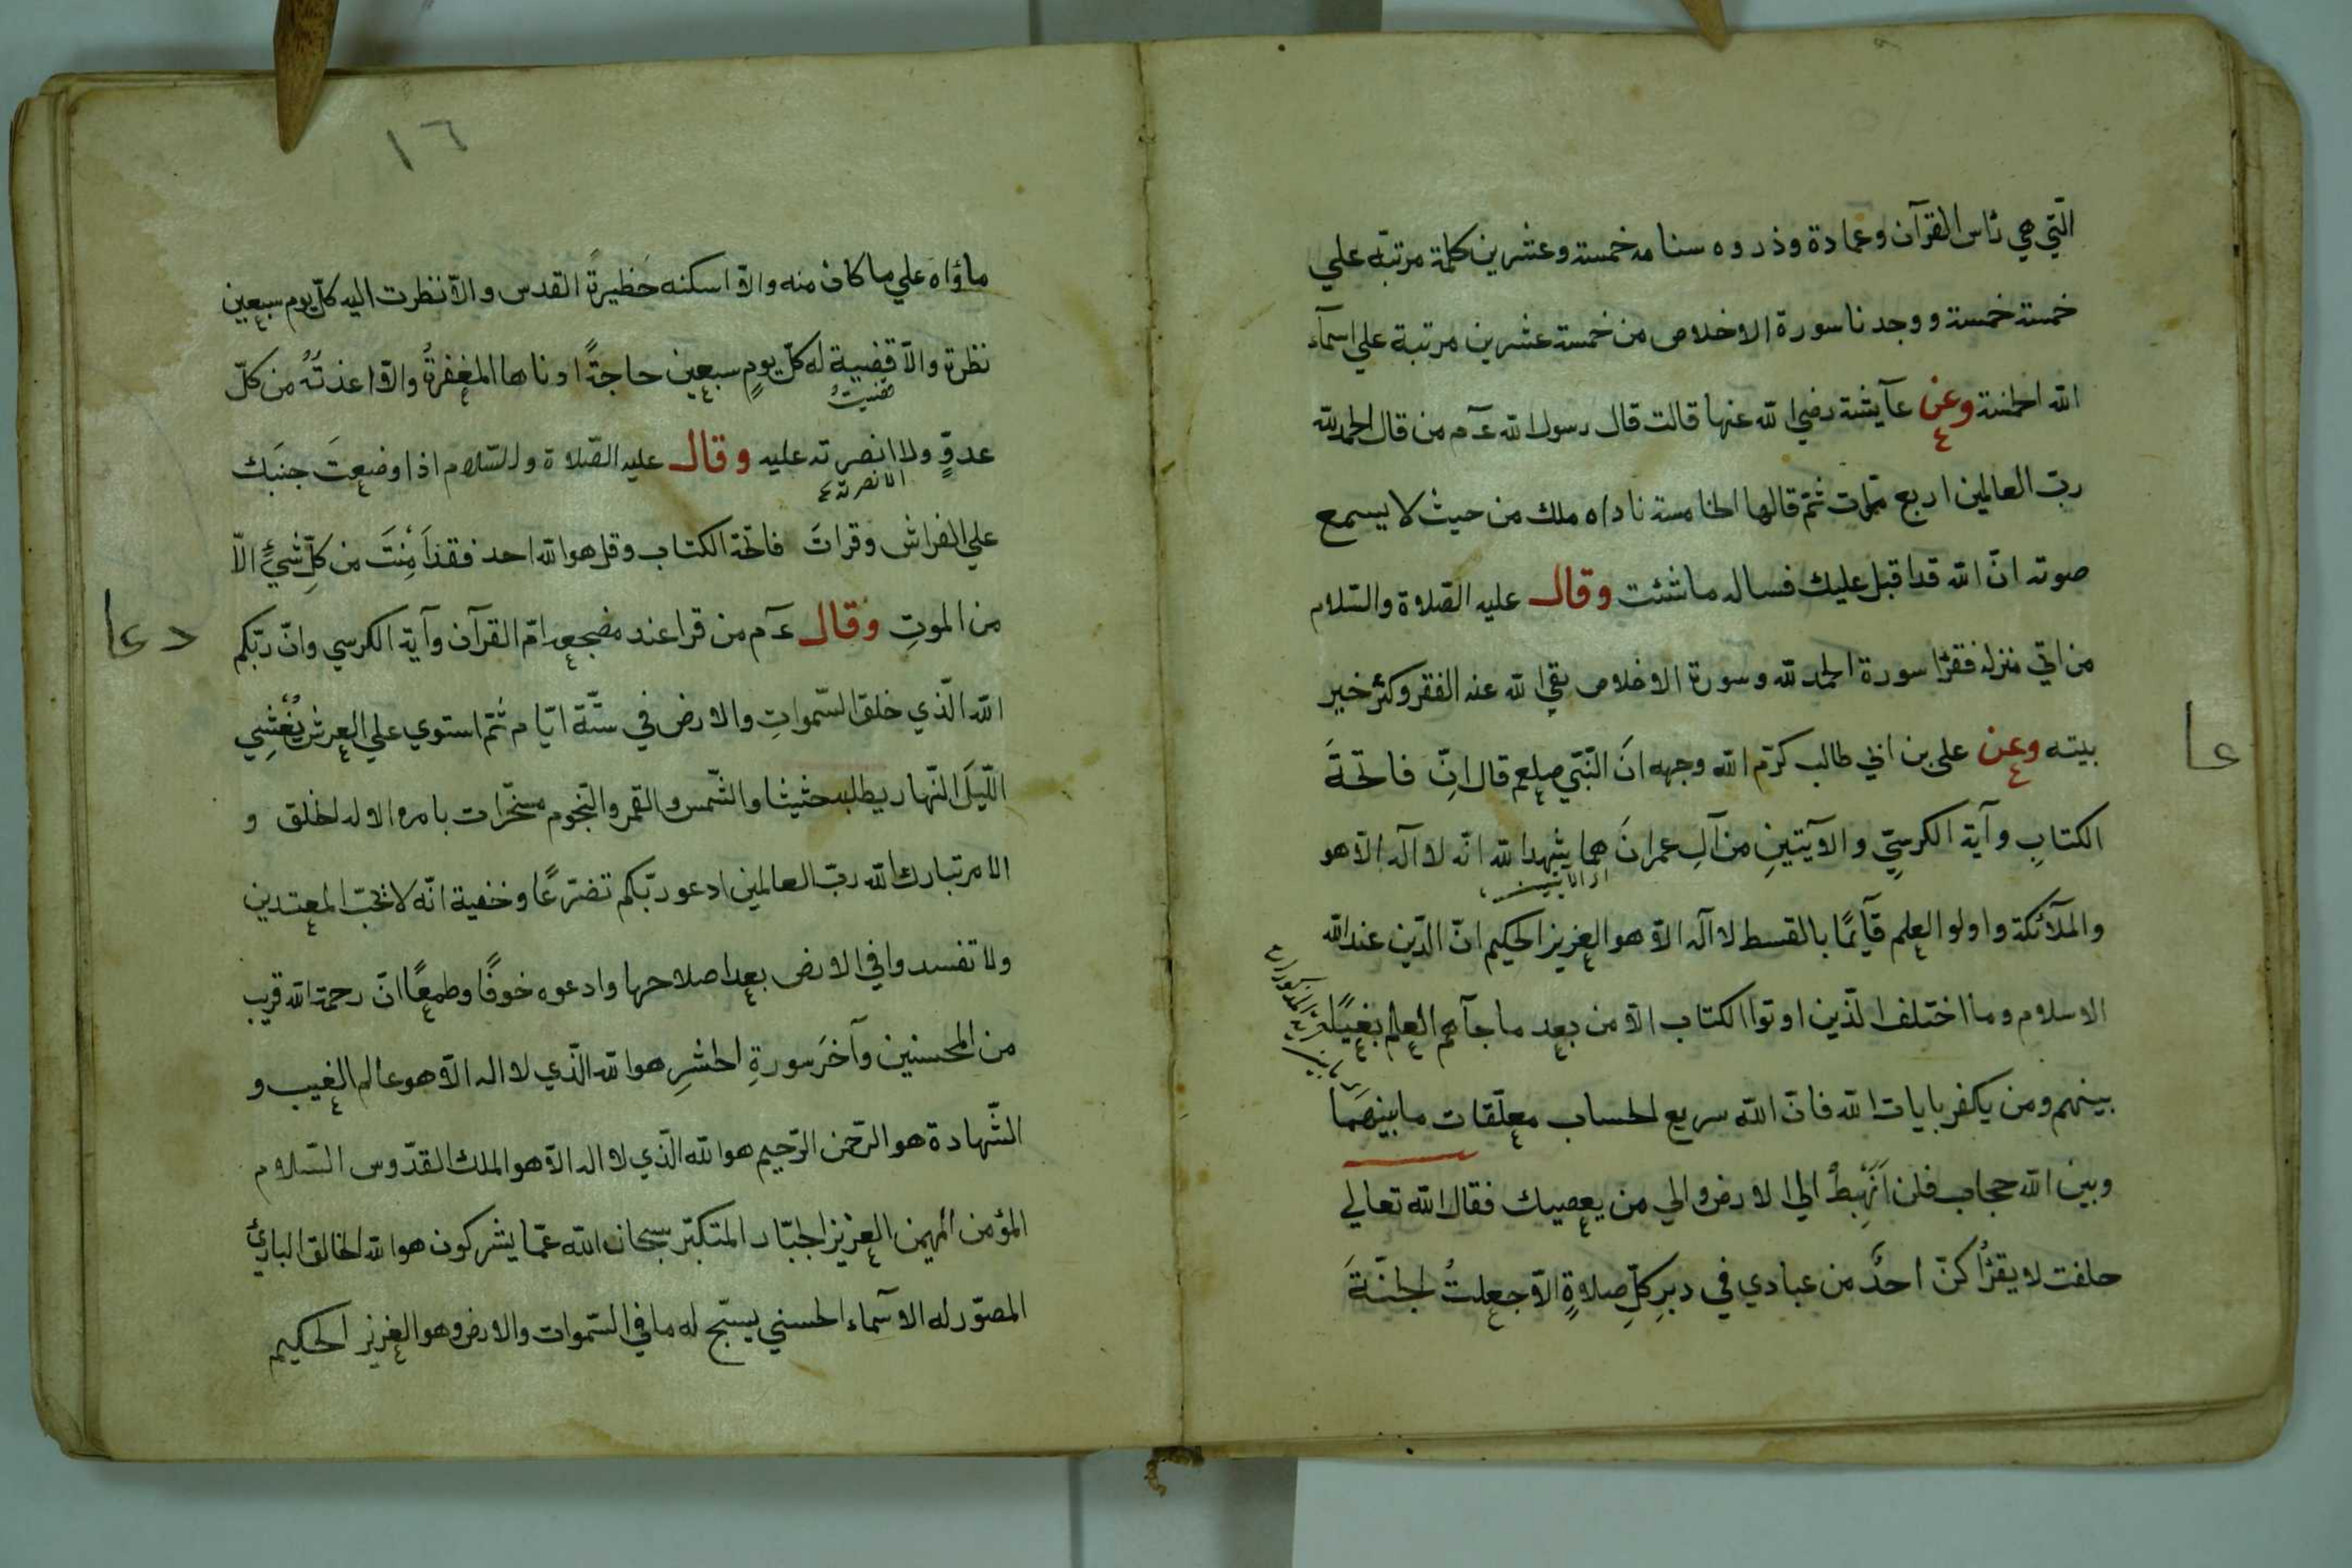 الّتي هي رأس القرآن وعمادة وذروه سنامه خمسة وعشرين كلمة مرتبّه علي
خمسة خمسة ووجدنا سورة الاخلاص من خمسة عشرين مرتبة علي اسمآء
الله الحسنة وعن عآيشة رضي الله عنها قالت قال رسول الله عـم من قال الحمد لله
ربّ العالمين اربع مرّات ثمّ قالها الخامسة ناداه ملك من حيث لا يسمع
صوته انّ الله قد اقبل عليك فساله ما شئت وقال عليه الصّلاة والسّلام
من اتي منزله فقرأ سورة الحمد لله وسورة الاخلاص بقي الله عنه الفقر وكثر خير
بيته وعن علي بن ابي طالب كرّم الله وجهه انَ النّبّي صلعم قال انِّ فاتحةَ
الكتابِ وآية الكرسيِّ والآيتينِ من آلِ عمرانَ هما يشهد الله انّه لا آله الاّ هو
اي الآيتين
والملآئكة واولو العلم قآيمًا بالقسط لا آله الاّ هو العزيز الحكيم انّ الدّين عند الله
الاسلام وما اختلف الّذين اوتوا الكتاب الاّ من بعد ما جآءهم العلم بغيًا
بينهم ومن يكفر بايات الله فانّ الله سريع الحساب معلّقات ما بينهَما
وبين الله حجاب فلن أَنهبِطْ الي الارض والي من يعصيك فقال الله تعالي
حلفت لا يقرأُ كنّ احدٌ من عبادي في دبرِ كلِّ صلاةٍ الاّ جعلتُ الجنّةَ
عا
١٦
مأواه علي ما كان منه والاّ اسكنه حَظيرةَ القدس والاّ نظرت اليه كلّ يوم سبعين
نظرة والاّ قضية له كلّ يومٍ سبعين حاجةً ادناها المغفرةُ والاّ اعذتُهُ من كلّ
قضيتُ
عدوٍّ ولا انصرته عليه وقال عليه الصّلاة والسّلام اذا وضعتَ جنبَك
الا نصرته
علي الفراش وقراتَ فاتحة الكتاب وقل هو الله احد فقد أَمِنْتَ من كلِّ شيءٍ الاّ
من الموتِ وقال عـم من قرا عند مضجعه امّ القرآن وآية الكرسي وانّ ربّكم
دعا
الله الّذي خلق السّمواتِ والارض في ستّة ايّام ثمّ استوي علي العرش يُغْشِي
اللّيلَ النّهار يطلبه حثيثا والشّمس والقمر والنّجوم مسخّرات بامره الا له الخلق و
الامر تبارك الله ربّ العالمين ادعو ربّكم تضرّعًا وخفية انّه لا يحبّ المعتدين
ولا تفسدوا في الارض بعد اصلاحها وادعوه خوفًا وطمعًا انّ رحمة الله قريب
من المحسنين وآخرَ سورةِ الحشرِ هو الله الّذي لا اله الاّ هو عالم الغيب و
الشّهادة هو الرّحمن الرّحيم هو الله الّذي لا اله الاّ هو الملك القدّوس السّلام
المؤمن المهيمن العزيز الجبّار المتكبّر سبحان الله عمّا يشركون هو الله الخالق البارئ
المصوّر له الاسمآء الحسني يسبّح له ما في السّموات والارض وهو العزيز الحكيم